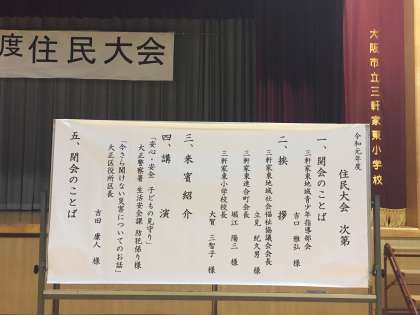 度住民大会
大阪市立三軒家東小学校
令和元年度
住民大会 次第
一、開会のことば
三軒家東地域青少年指導部会
吉口 雅弘 様
二、挨 拶
三軒家東地域社会福祉協議会会長
立見 紀久男 様
三軒家東連合町会長
堀江 陽三 様
三軒家東小学校校長
大賀 三智子 様
三、来賓紹介
四、講 演
「安心・安全 子どもの見守り」
大正警察署 生活安全課 防犯係り様
「今さら聞けない災害についてのお話」
大正区役所区長
吉田 康人 様
五、閉会のことば